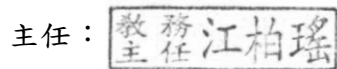 主任：教務主任江柏瑤